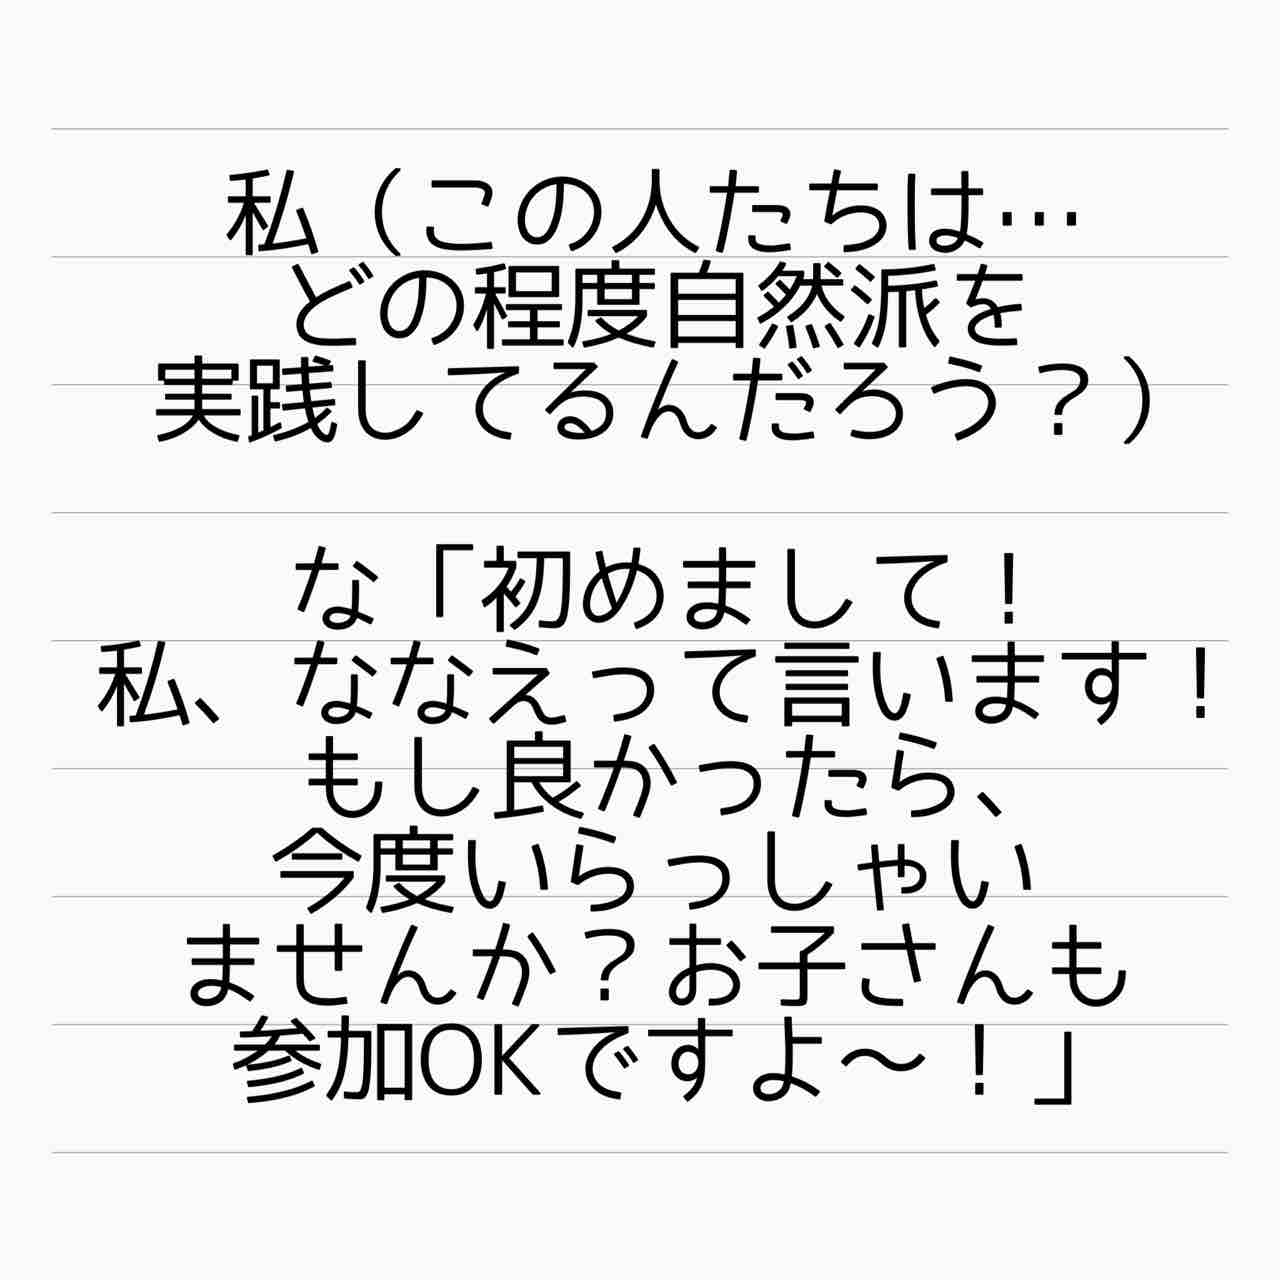 私（この人たちは…
どの程度自然派を
実践してるんだろう？）
な「初めまして！
私、ななえって言います！
もし良かったら、
今度いらっしゃい
ませんか？お子さんも
参加OKですよ〜！」